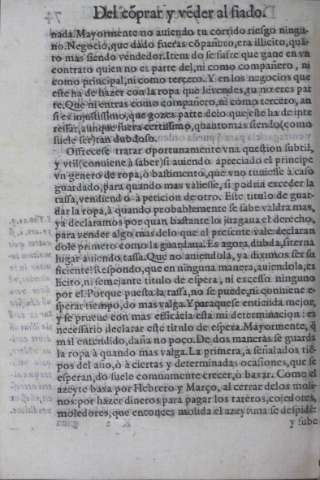 Del cõprar y vẽder al fiado.
nada. Mayormente no auiendo tu corrido riesgo ningu-
no. Negocio, que dado fueras cõpañero, era illicito, quã-
to mas siendo vendedor. Item do se sufre que gane en vn
contrato quien no es parte del, ni como compañero, ni
como principal, ni como tercero. Y en los negocios que
este ha de hazer con la ropa que le vendes, tu no eres par
te. Que ni entras como compañero, ni como tercero, an
si es injustissimo, que gozes parte de lo que este ha de inte
ressar, aunque fuera certissimo, quanto mas siẽdo (como
suele ser) tan dubdoso.
Offrecese tratar oportunamente vna question subtil,
y vtil (conuiene à saber) si auiendo apreciado el principe
vn genero de ropa, ò bastimento, que vno tuuiesse à caso
guardado, para quando mas valiesse, si podria exceder la
tassa, vendiendo à peticion de otro. Este titulo de guar-
dar la ropa, à quando probablemente se sabe valdra mas,
ya declaramos por quan bastante lo juzgaua el derecho,
para vender algo mas de lo que al presente vale declaran
dole primero como la guardaua. Es agora dubda, si terna
lugar auiendo tassa. Que no auiendola, ya diximos ser su
ficiente: si respondo, que en ninguna manera, auiendola, es
licito, ni semejante titulo de espera, ni excessis ninguno
por el. Porque puesta la tassa, no se puede, ni conuiene e-
sperar tiempo, do mas valga. Y para que se entienda mejor,
y se prueue con mas efficacia esta mi determinacion: es
necessario declarar este titulo de espera. Mayormente, q̃
mal entendido, daña no poco. De dos maneras se guarda
la ropa à quando mas valga. La primera, a señalados tiẽ-
pos del año, ò à ciertas y determinadas ocasiones, que se
esperan, do suele comunmente crecer, ò baxar. Como el
azeyte baxa por Hebrero y Março, al cerrar de los moli-
nos: por hazer dineros para pagar los tareros, cojedores,
moledores, que entonces molida el azeytuna se despidẽ:
y sube